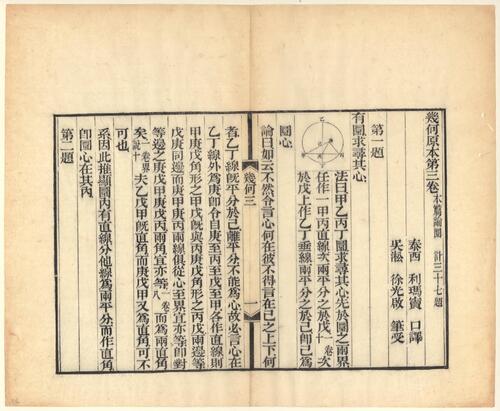 幾何原本第三卷 本篇論圜 計三十七題
泰西 利瑪竇 口譯
吳淞 徐光啟 筆受
第一題
有圜求尋其心
法曰甲乙丙丁圜求尋其心先於圜之兩界
任作一甲丙直線次兩平分之於戊 一卷十 次
於戊上作乙丁垂線兩平分之於己即己為
圜心
論曰如云不然令言心何在彼不得言在己之上下何
者乙丁線旣平分於己離平分不能為心故必言心在
乙丁線外為庚即令自庚至丙至戊至甲各作直線則
甲庚戊角形之甲戊旣與丙庚戊角形之丙戊兩邊等
戊庚同邊而庚甲庚丙兩線俱從心至界宜亦等即對
等邊之庚戊甲庚戊丙兩角宜亦等 一卷八 而為兩直角
矣 一卷界說十 夫乙戊甲旣直角而庚戊甲又為直角可不
可也
系因此推顯圜內有直線分他線為兩平分而作直角
即圜心在其內
第二題
幾何三
一
甲
乙
丙
丁
戊
己
庚